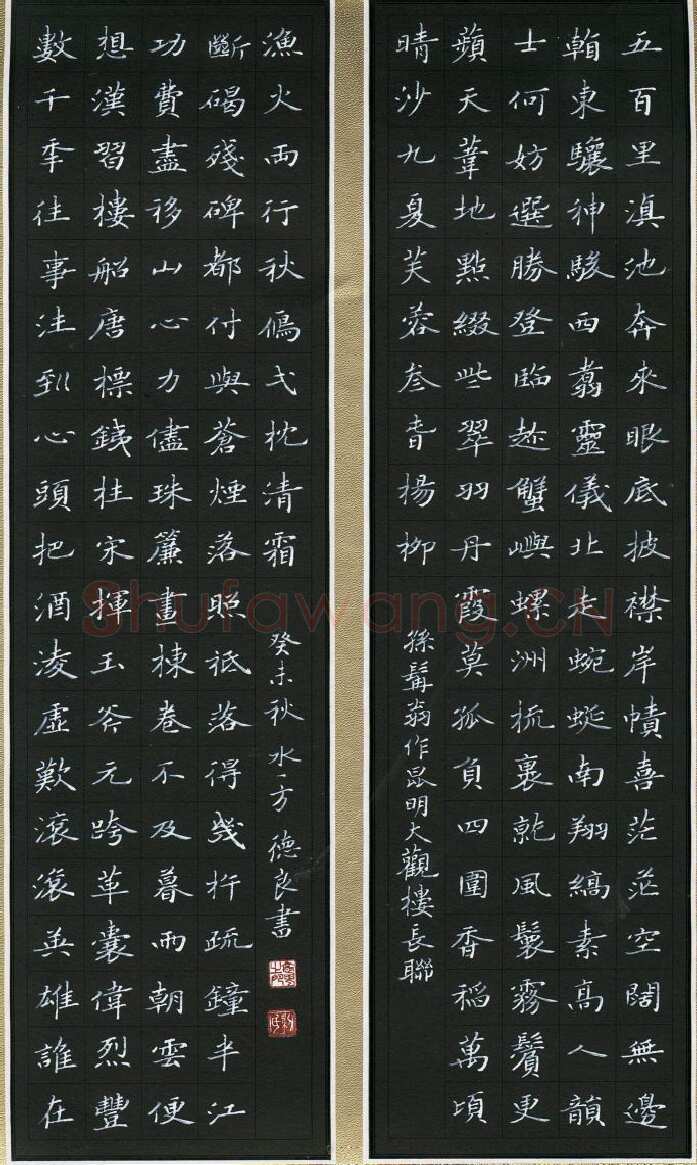 五百里滇池奔來眼底披襟岸幘喜茫茫空闊無邊
看東驤神駿西翥靈儀北走蜿蜒南翔縞素高人韻
士何妨選勝登臨趁蟹嶼螺洲梳裹就風鬟霧鬢更
蘋天葦地點綴些翠羽丹霞莫孤負四圍香稻萬頃
晴沙九夏芙蓉叁春楊柳
孫髯翁作昆明大觀樓長聯
數千秊往事注到心頭把酒淩虛歎滾滾英雄誰在
想漢習樓船唐標銕柱宋揮玉斧元跨革囊偉烈豐
功費盡移山心力儘珠簾畫棟卷不及暮雨朝雲便
斷碣殘碑都付與蒼煙落照祗落得幾杵疏鐘半江
漁火兩行秋鴈弌枕清霜
癸未秋水一方德良書
Shufawang.CN